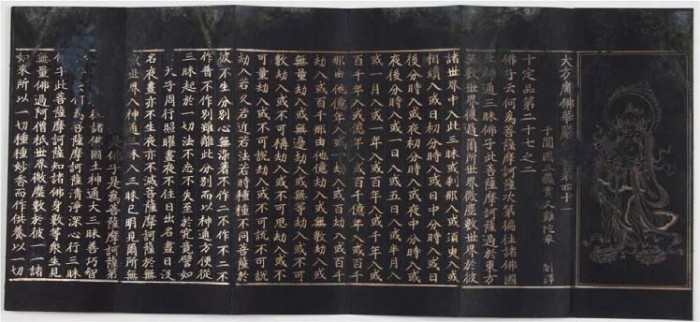 大方廣佛華嚴第四十
十定品第二十七之二
于闐國三藏實叉難陀奉 制譯
佛子云何為菩薩摩訶薩次第徧往諸佛國
神通三昧佛子此菩薩摩訶薩過於東方
無數世界復過爾所世界微塵數世界於彼
諸世界中入此三昧或刹那入或須臾入或
相續入或日初分時入或日中分時入或日
後分時入或夜初分時入或夜中分時入或
夜後分時入或一日入或五日入或半月入
或一月入或一年入或百年入或千年入或
百千年入或億年入或百千億年入或百千
那由他億年入或一劫入或百劫入或百千
劫入或百千那由他億劫入或無數劫入或
無量劫入或無邊劫入或無等劫入或不可
數劫入或不可稱劫入或不可思劫入或不
可量劫入或不可說劫入或不可說不可說
劫入若久若近若法若時種種不同菩薩於
彼不生分別心無染著不作二不作不二不
作普不作別雖離此分別而以神通方便從
三昧起於一切法不忘不失至於究竟譬如
天子周行照曜晝夜不住日出名晝日沒
名夜晝亦不生夜亦不滅菩薩摩訶薩於無
數世界入神通三昧入三昧已明見爾所無
佛子是為菩薩摩訶薩第
往諸佛國土神通大三昧善巧智
何為菩薩摩訶薩清淨深心行三昧
佛子此菩薩摩訶薩知諸佛身數等衆生見
無量佛過阿僧祇世界微塵數於彼一一諸
如來所以一切種種妙香而作供養以一切